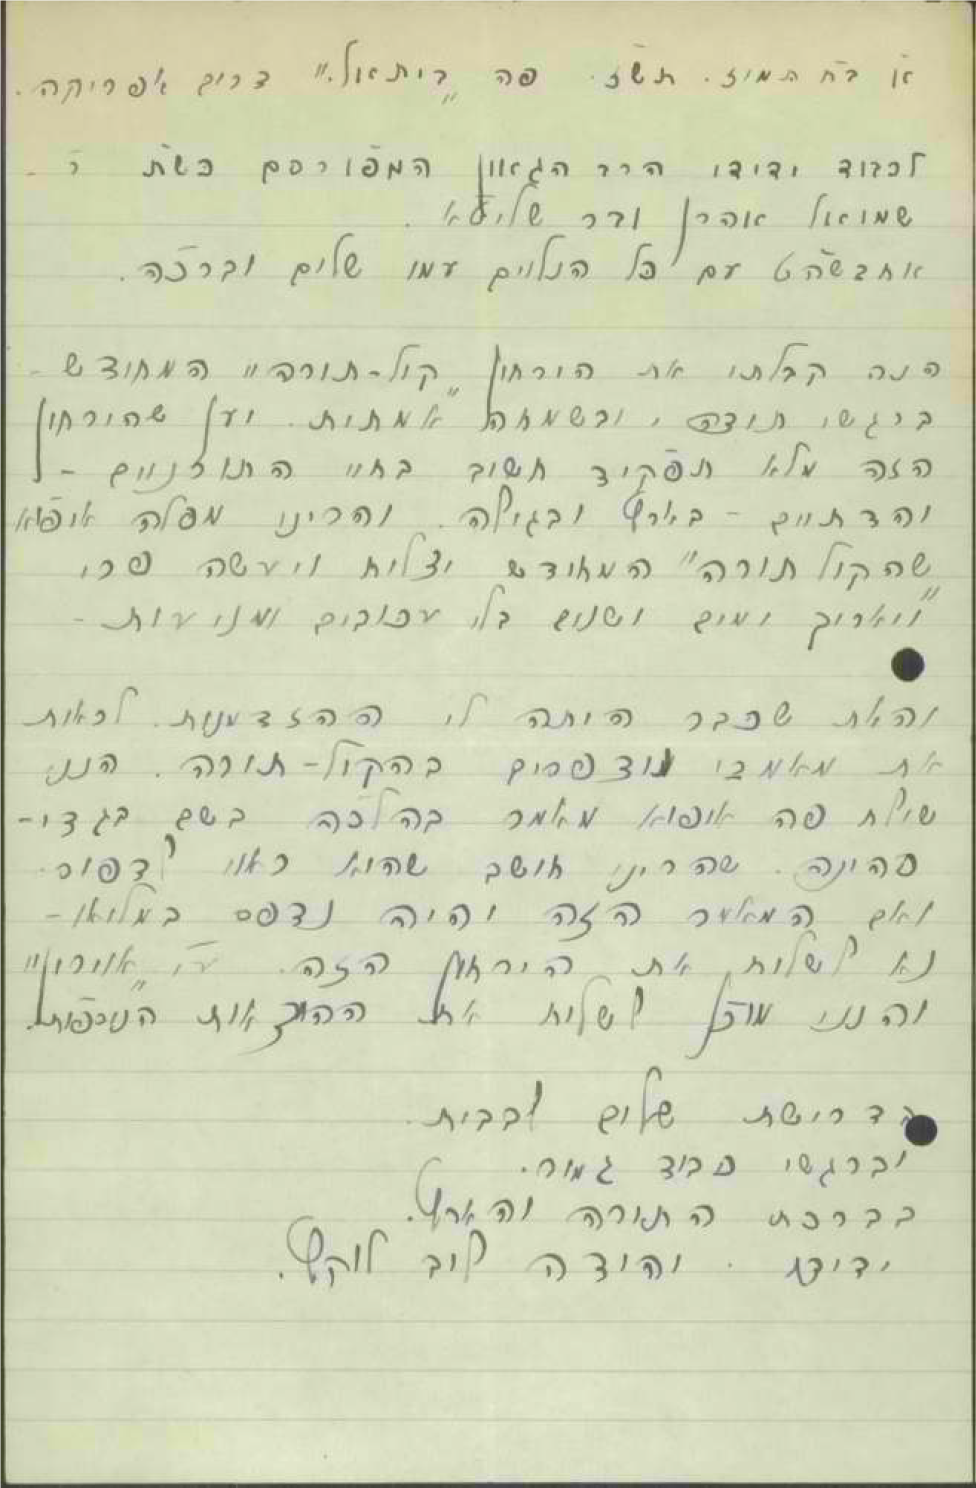 א׳ ב״ח תמוז. תש״ז. פה „ביתאל." דרום אפריקה.
לכבוד ידידי הרר הגאון המפורסם כש״ת ר׳
שמואל אהרן ובר שליט״א.
אחבשה״ט עם כל הנלוים עמו שלום וברכה.
הנה קבלתי את הירחון „קול-תורה" המחודש -
ברגשי תודה, ובשמחה אמתית. יען שהירחון
הזה מלא תפקיד חשוב בחיי התורניים -
והדתיים - בארץ ובגולה. והריני מפלה איפוא
שה„קול תורה" המחודש יצליח ויעשה פרי
ויאריך ימים ושנים בלי עכובים ומניעות -
והאת שכבר היתה לי ההזדמנות לראות
את מאמרי נדפסים בהקול-תורה. הנני
שולח פה איפוא מאמר בהלכה בשם בגדי-
כהונה. שהריני חושב שהוא ראוי לדפוס.
ואם המאמר הזה יהיה נדפס במלואו -
נא לשלוח את הירחון הזה. ע״י „אוירון"
והנני מוכן לשלוח את ההוצאות הנוספות.
בדרישת שלום לבבית.
וברגשי כבוד גמור.
בברכת התורה והארץ.
ידידו. יהודה ליב לוקץ.